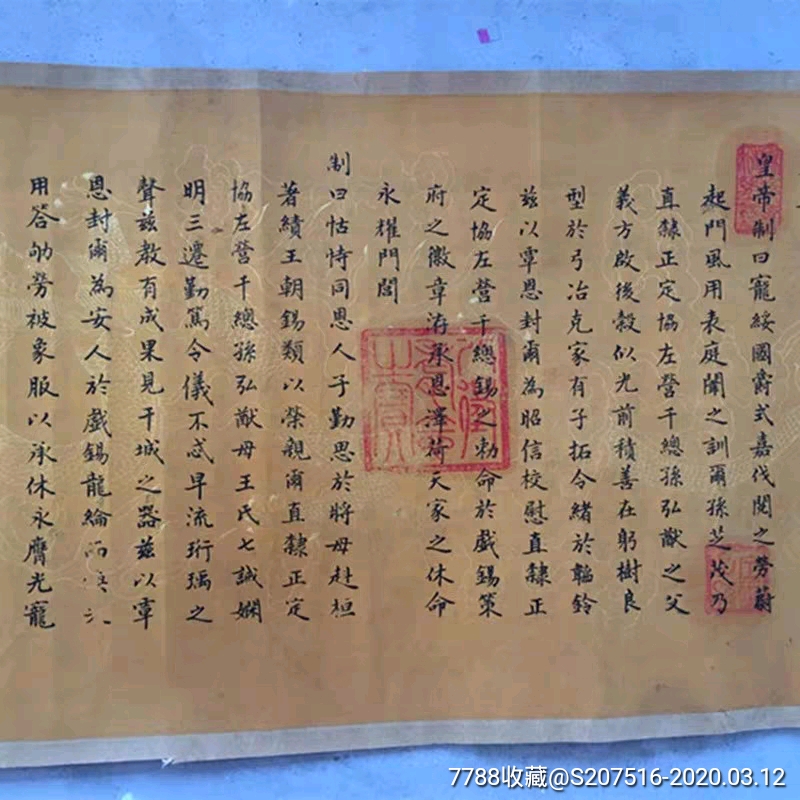 皇帝制曰寵綏國爵式嘉伐閱之勞蔚
起門風用表庭闈之訓爾孫芝茂乃
直隸正定協左營千總孫弘猷之父
義方啟後穀似光前積善在躬樹良
型於弓冶克家有子拓令緒於韜鈐
茲以覃恩封爾為昭信校慰直隸正
定協左營千總錫之勅命於戲錫策
府之徽章洊承恩澤荷天家之休命
永耀門閭
制曰怙恃同恩人子勤思於將母赳桓
著績王朝錫類以榮親爾直隸正定
協左營千總孫弘猷母王氏七誡嫻
明三遷勤篤令儀不忒早流珩瑀之
聲茲教有成果見干城之器茲以覃
恩封爾為安人於戲錫龍綸而
用答劬勞被象服以承休永膺光寵
7788收藏@S207516-2020.03.12